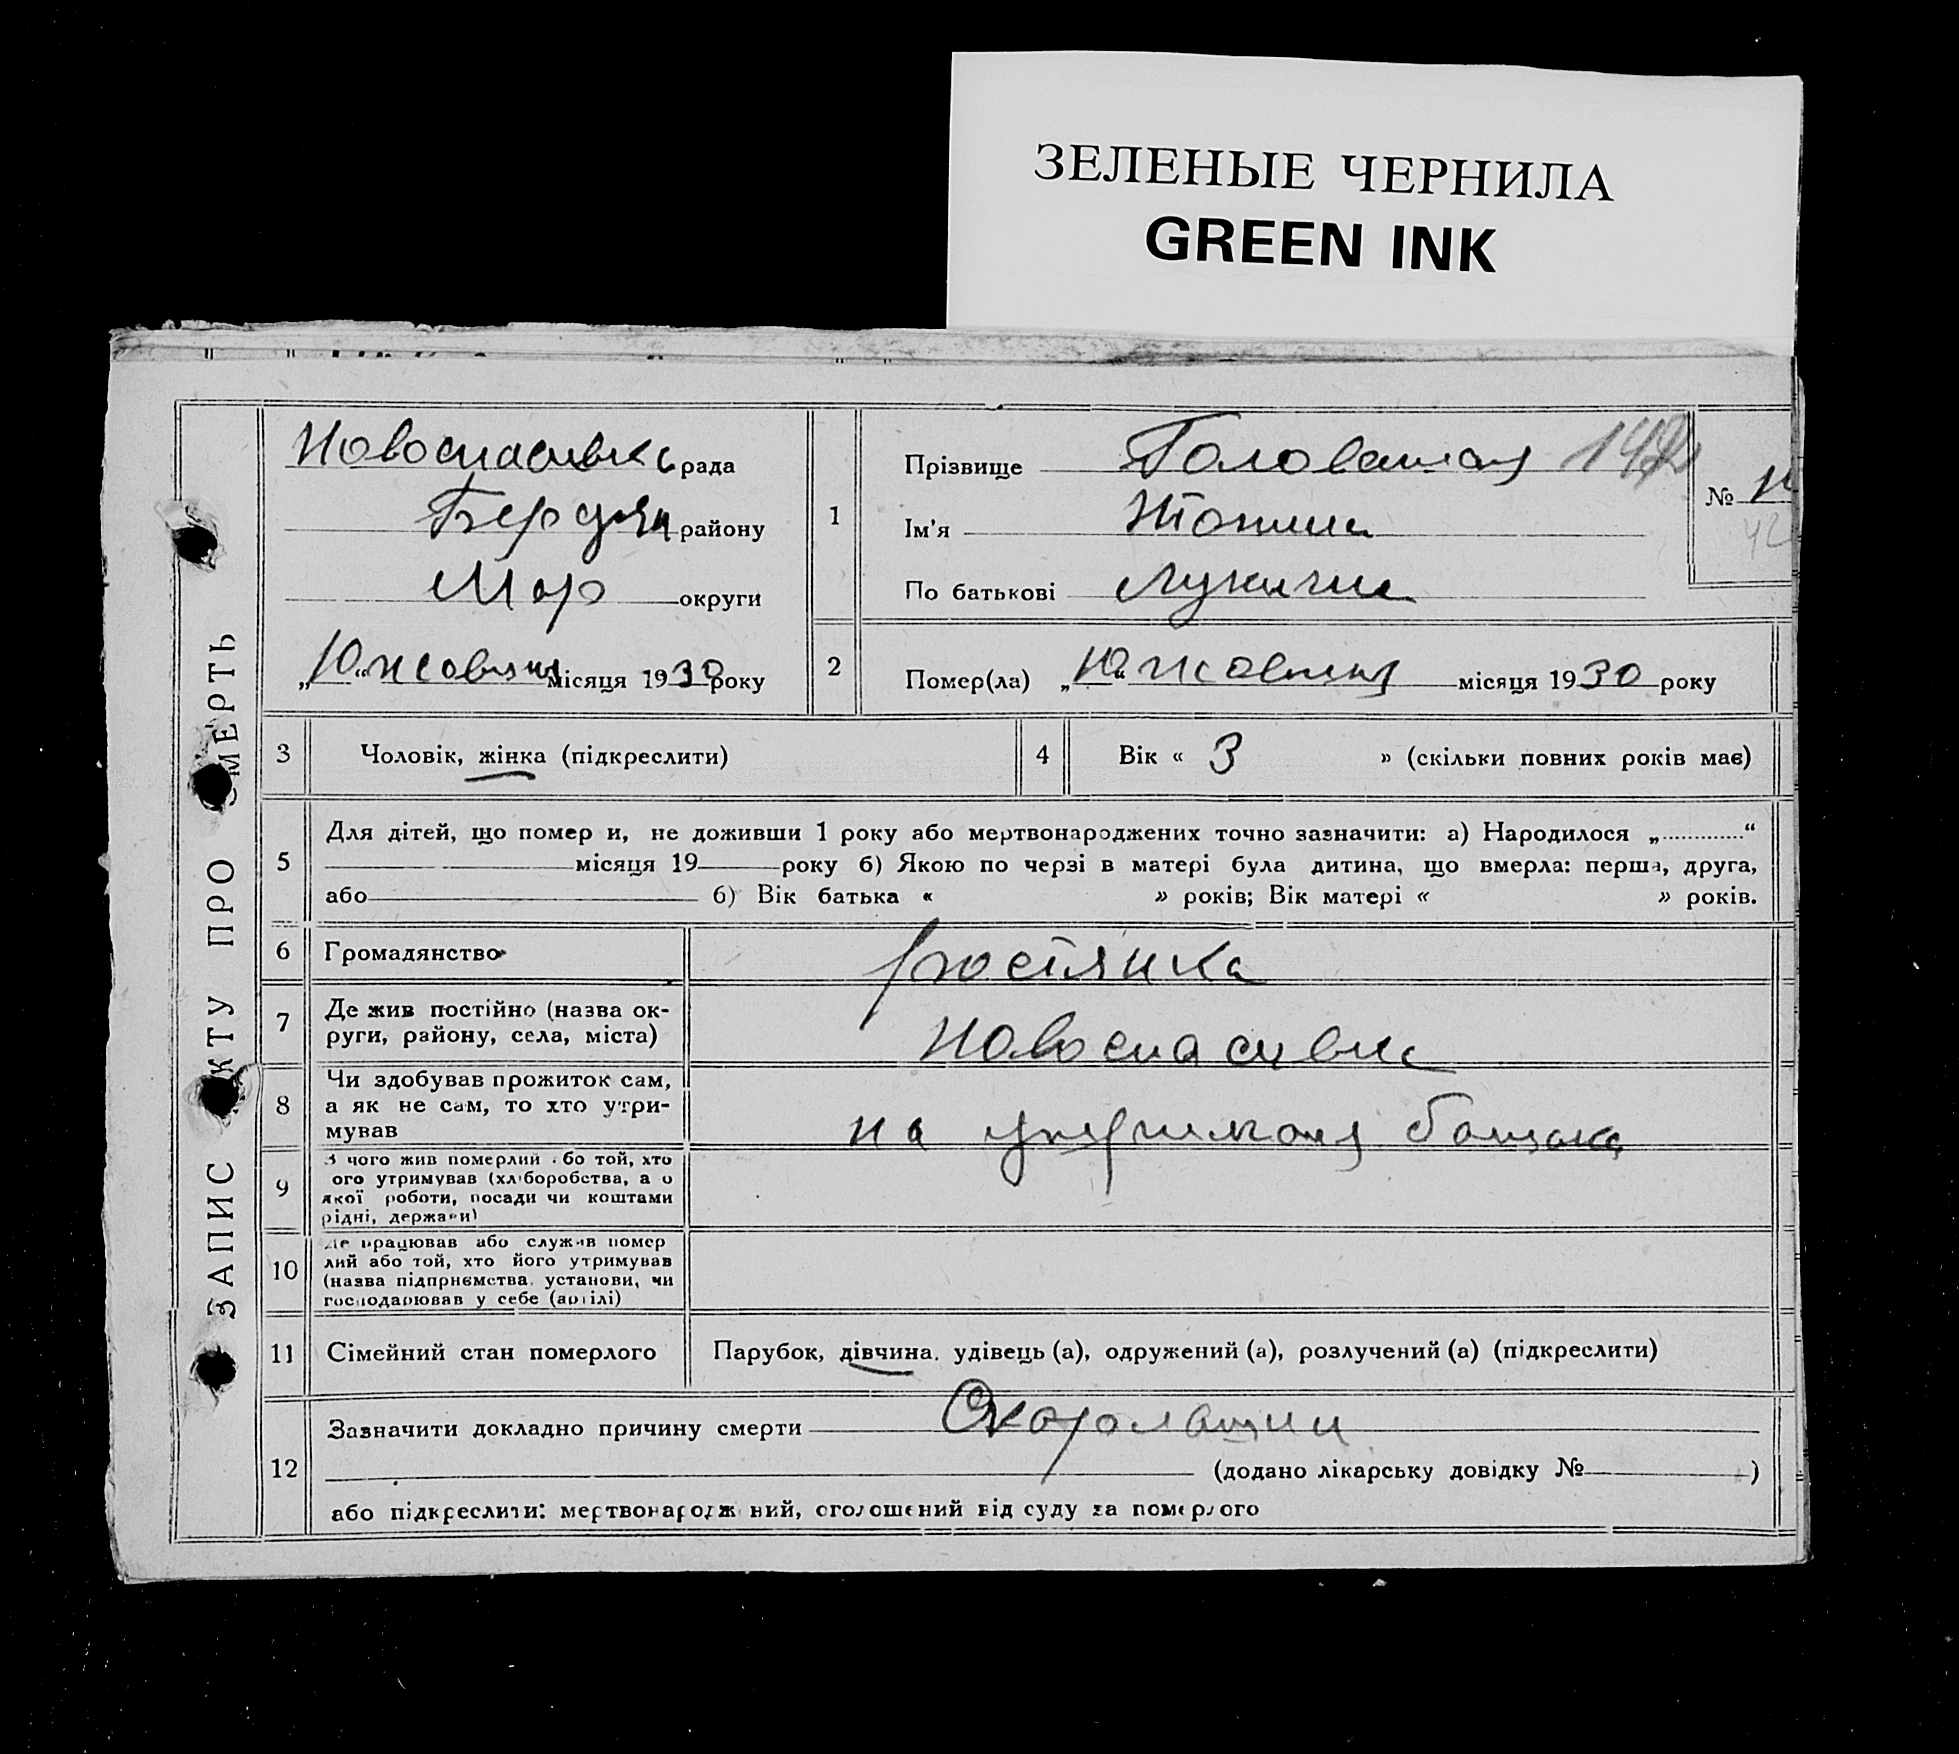 ЗЕЛЕНЫЕ ЧЕРНИЛА
GREEN INK
ЗАПИС АКТУ ПРО СМЕРТЬ
Новоспасівка рада
Бердян району
Мар округи
„10“ жовтня місяця 1930 року
1
Прізвище Головатая
Ім'я
По батькові Лукична
№
2
Помер(ла) „10“ жовтня місяця 1930 року
3
Чоловік, жінка (підкреслити)
4
Вік « 3 » (скільки повних років має)
5
Для дітей, що помер и, не доживши 1 року або мертвонароджених точно зазначити: а) Народилося „..............“
місяця 19 року б) Якою по черзі в матері була дитина, що вмерла: перша, друга,
або б) Вік батька « » років; Вік матері « » років.
6
Громадянство
7
Де жив постійно (назва ок-
руги, району, села, міста)
Новоспасивка
8
Чи здобував прожиток сам,
а як не сам, то хто утри-
мував
на утриманя батька
9
З чого жив померлий або той, хто
ого утримував (хліборобства, а о
якої роботи, посади чи коштами
рідні, держави)
10
Де працював або служив помер
лий або той, хто його утримував
(назва підприємства, установи, чи
господарював у себе (артілі)
11
Сімейний стан померлого
Парубок, дівчина, удівець (а), одружений (а), розлучений (а) (підкреслити)
12
Зазначити докладно причину смерти Скарлатини
(додано лікарську довідку № )
або підкреслити: мертвонародж ний, оголошений від суду за померлого